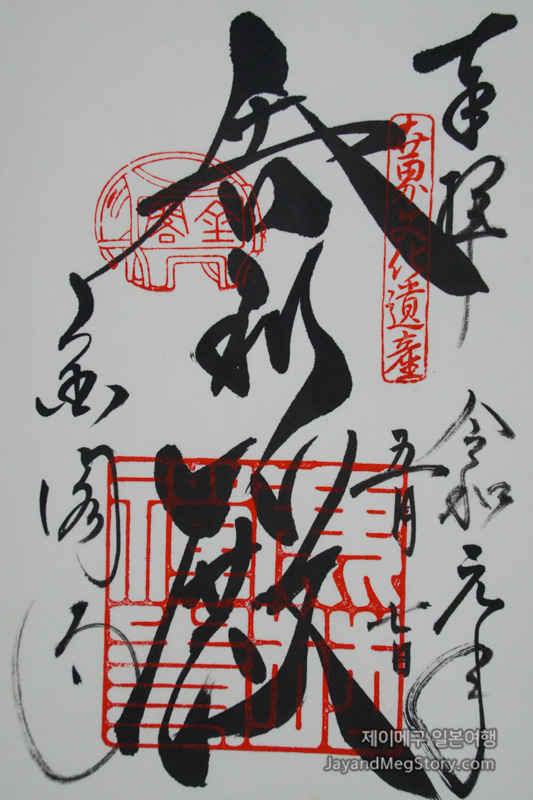 奉拝
世界文化遺産
令和元年
五月七日
舎利殿
金閣
金閣寺
제이메구 일본여행
JayandMegStory.com